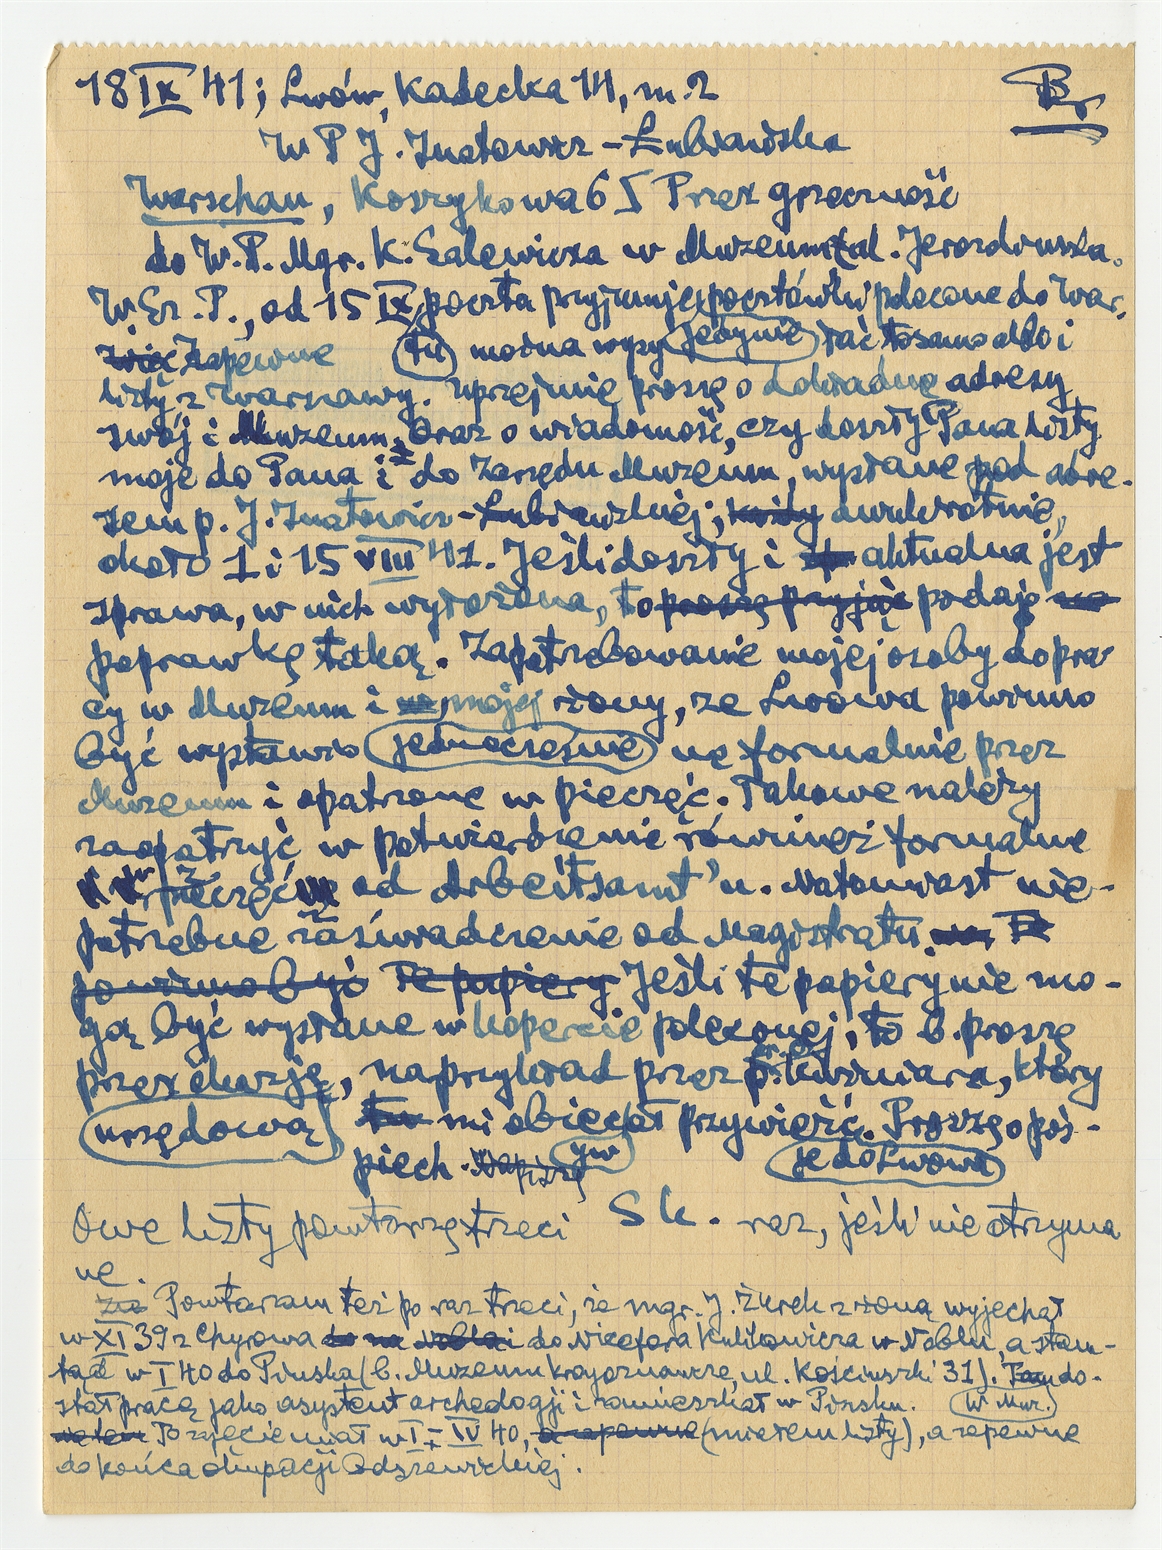 18 IX 41; Lwów, Kadecka 14, m. 2 Br
W P J. Inatowicz - Łubiańska
Warschau, Koszykowa 65 Przez grzeczność
do W. P. Mgr. K. Salewicza w Muzeum Al. Jerozolimska.
W. Sz. P., od 15 IX poczta przyjmuje pocztówki polecone do War.
więc Zapewne tu można wysy jedynie łać to samo albo i
listy z Warszawy. Uprzejmie proszę o dokładne adresy
swój i Muzeum. Oraz o wiadomość, czy doszły Pana listy
moje do Pana i do Zarządu Muzeum, wysłane pod adre-
sem p. J. Inatowicz - Łubiańskiej; dwukrotnie,
około 1 i 15 VIII 41. Jeśli doszły i aktualna jest
sprawa, w nich wyłożona, to proszę przyjąć podaję
poprawkę taką. Zapotrzebowanie mojej osoby do pra-
cy w Muzeum i mojej żony, ze Lwowa powinno
być wystawio jednocześnie ne formalnie przez
Muzeum i opatrzone w pieczęć. Takowe należy
zaopatrzyć w potwierdzenie również formalne
z pieczęcią od Arbeitsamt'u. Natomiast nie-
potrzebne zaświadczenie od Magistratu. Te
powinno być Te papiery Jeśli te papiery nie mo-
gą być wysłane w kopercie poleconej, to b. proszę
przez okazję, naprzykład przez p. Kuśniarza, który
urzędową mi obiecał przywieźć. Proszę o poś-
piech. Napiszę je do Lwowa
Owe listy powtórzę trzeci Sk. raz, jeśli nie otrzyma
ne.
Powtarzam też po raz trzeci, że mgr. J. Żurek z żoną wyjechał
w XI 39 z Chyrowa do Nicefora Kulikowicza w Noblu, a stam-
tąd w I 40 do Pińska (b. Muzeum krajoznawcze, ul. Kościuszki 31). Tam do-
stał pracę jako asystent archeologji i zamieszkał w Pińsku. W Muz.
To zajęcie miał w I - IV 40, a zapewne (miałem listy), a zapewne
do końca okupacji bolszewickiej.